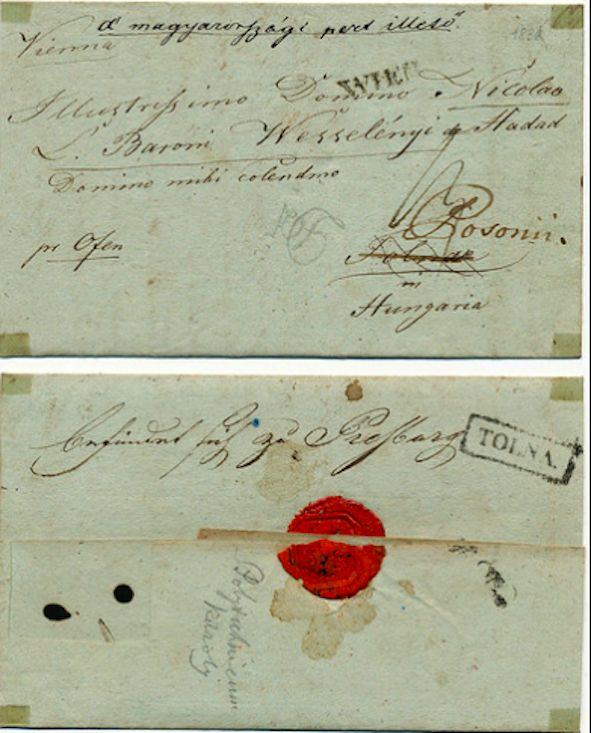 a' magyarországi pert illető.
Vienna
1832
WIEN
Illustrissimo Domino Nicolao
L. Baroni Wesselényi de Hadad
Domino mihi colendmo
Posonii.
pr Ofen
Tolnae
in
Hungaria
befindet sich zu Pressburg
TOLNA.
Károly